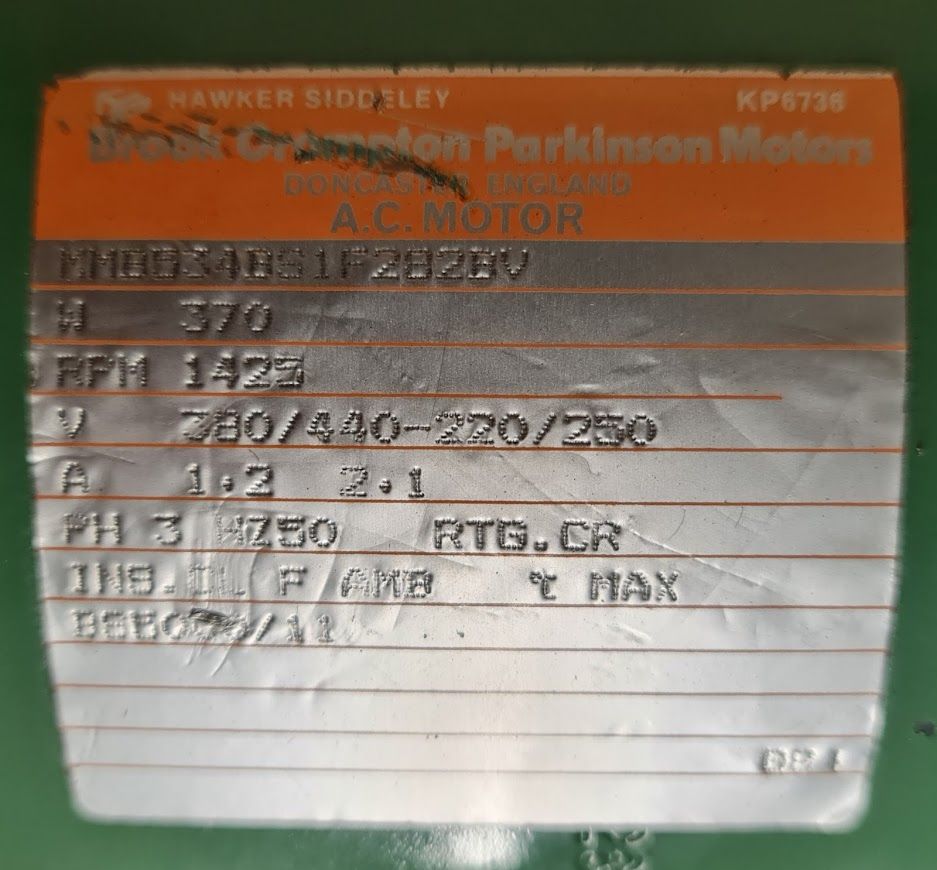 HAWKER SIDDELEY KP6736
Brook Crompton Parkinson Motors
DONCASTER, ENGLAND
A.C. MOTOR
W 370
RPM 1425
V 380/440-220/250
A. 1.2 2.1
PH 3 HZ50 RTG.CR
INS.CL F AMB °C MAX